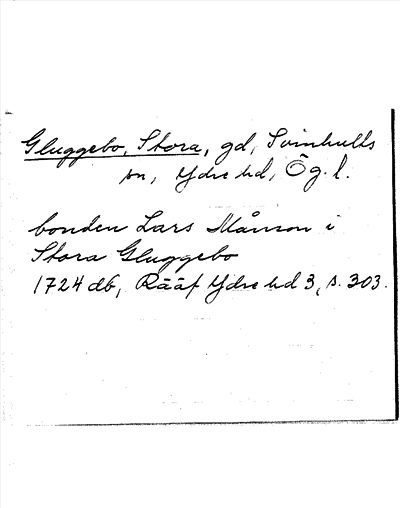 Gluggebo, Stora, gd, Svinhults
sn, Ydre hd, Ög. l.
bonden Lars Månson i
Stora Gluggebo
1724 db, Rääf Ydre hd 3, s. 303.